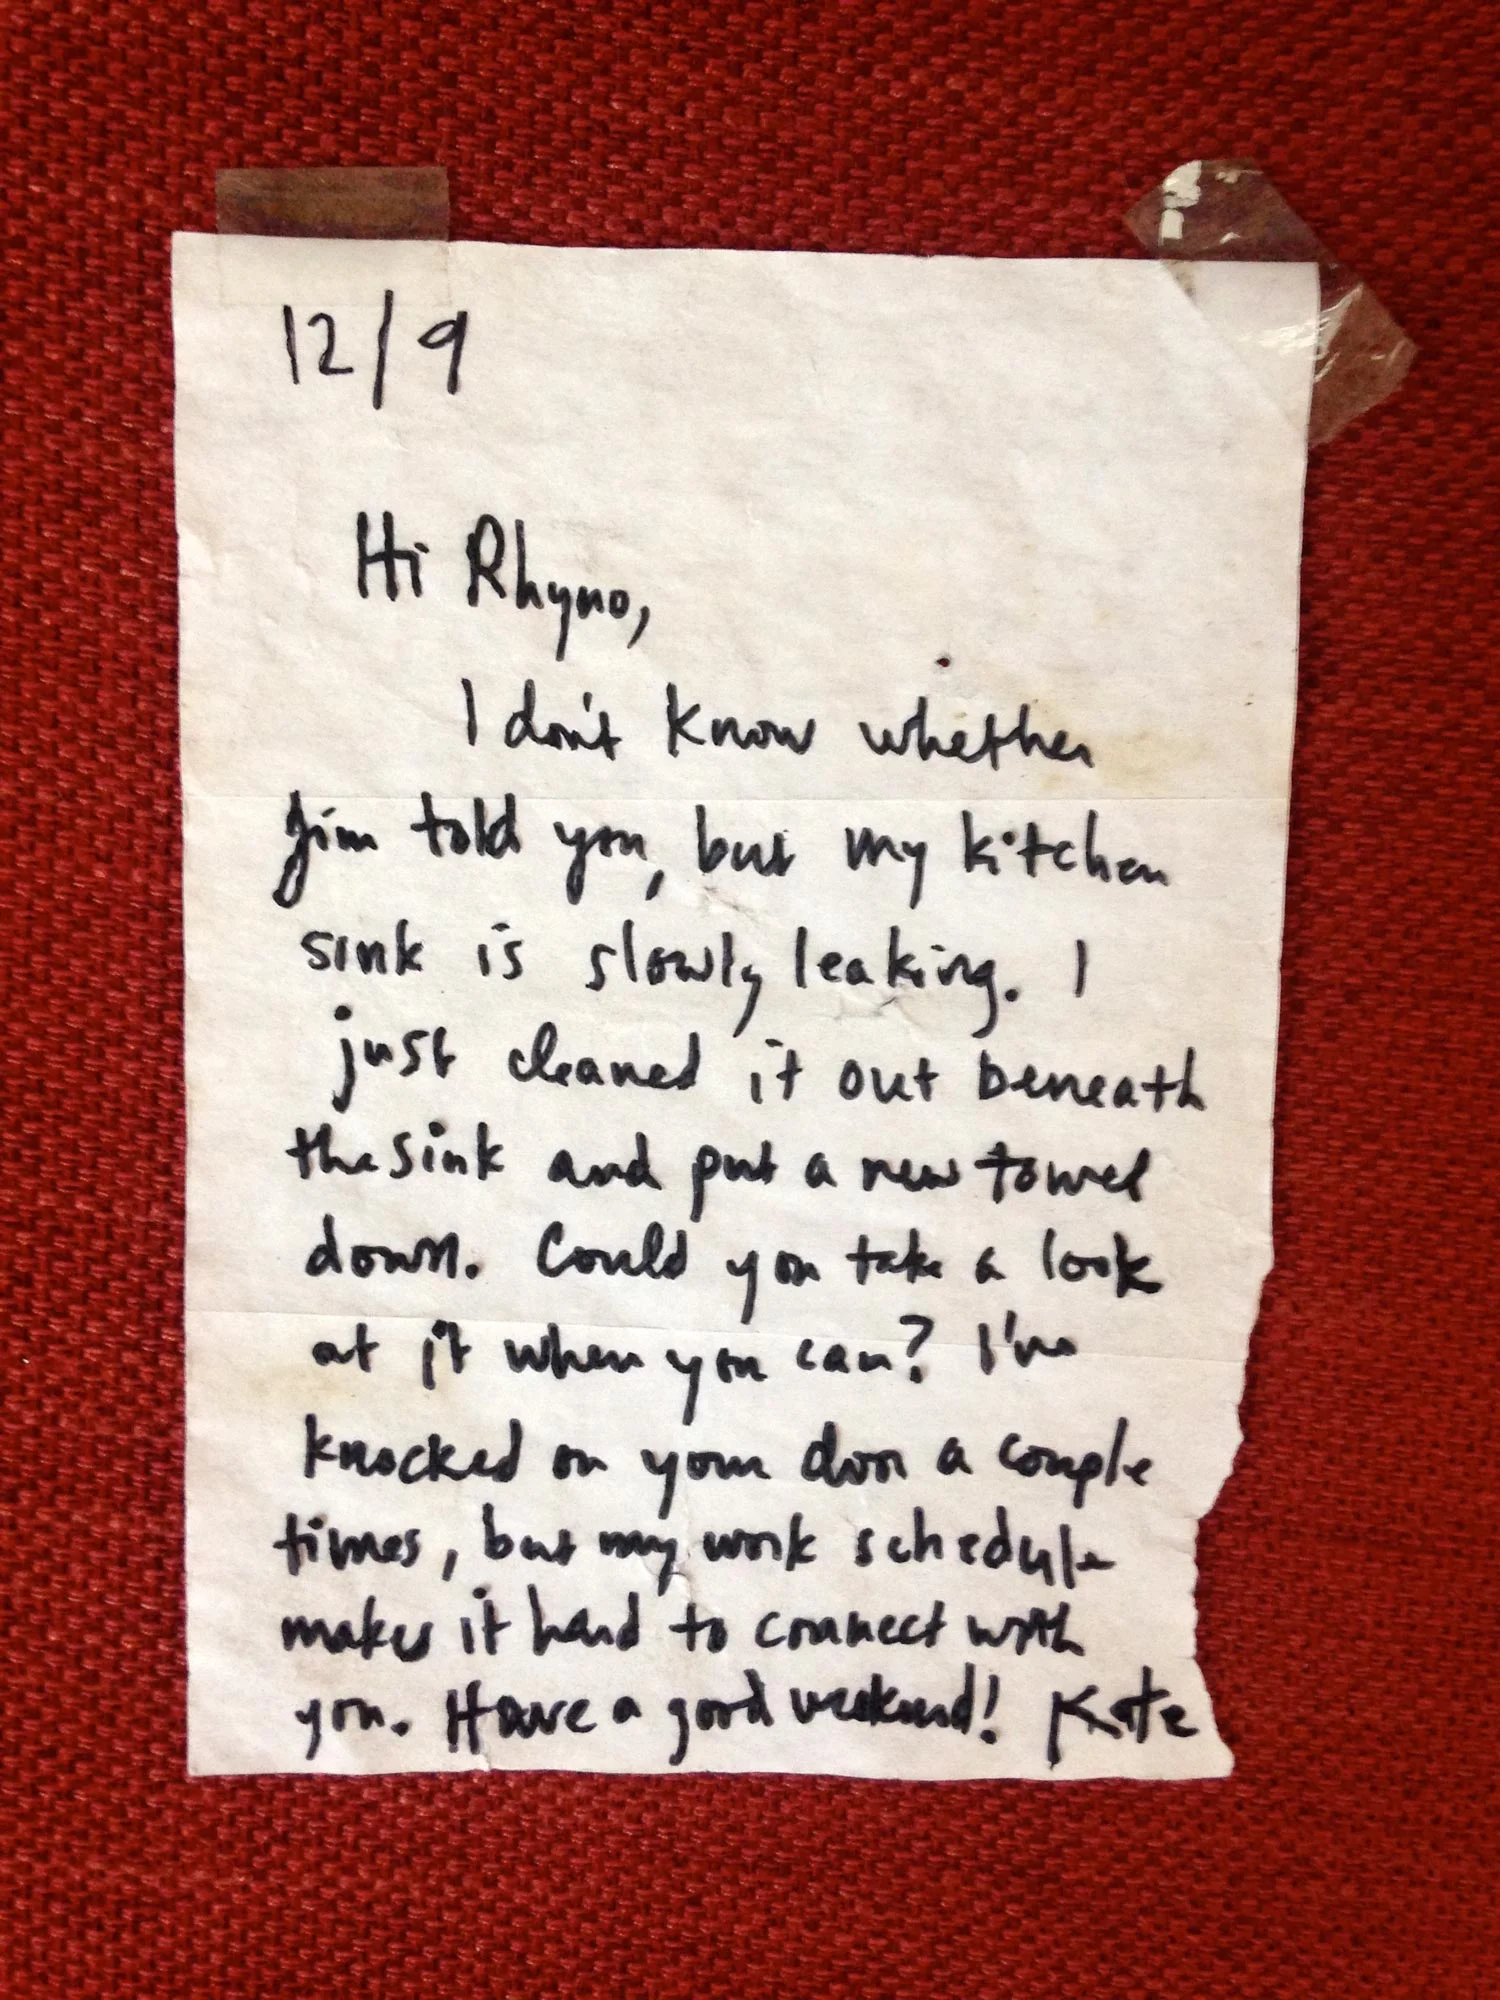 12/9
Hi Rhyno,
I don't know whether
Jim told you, but my kitchen
sink is slowly leaking. I
just cleaned it out beneath
the sink and put a new towel
down. Could you take a look
at it when you can? I've
knocked on your door a couple
times, but my work schedule
makes it hard to connect with
you. Have a good weekend! Kate